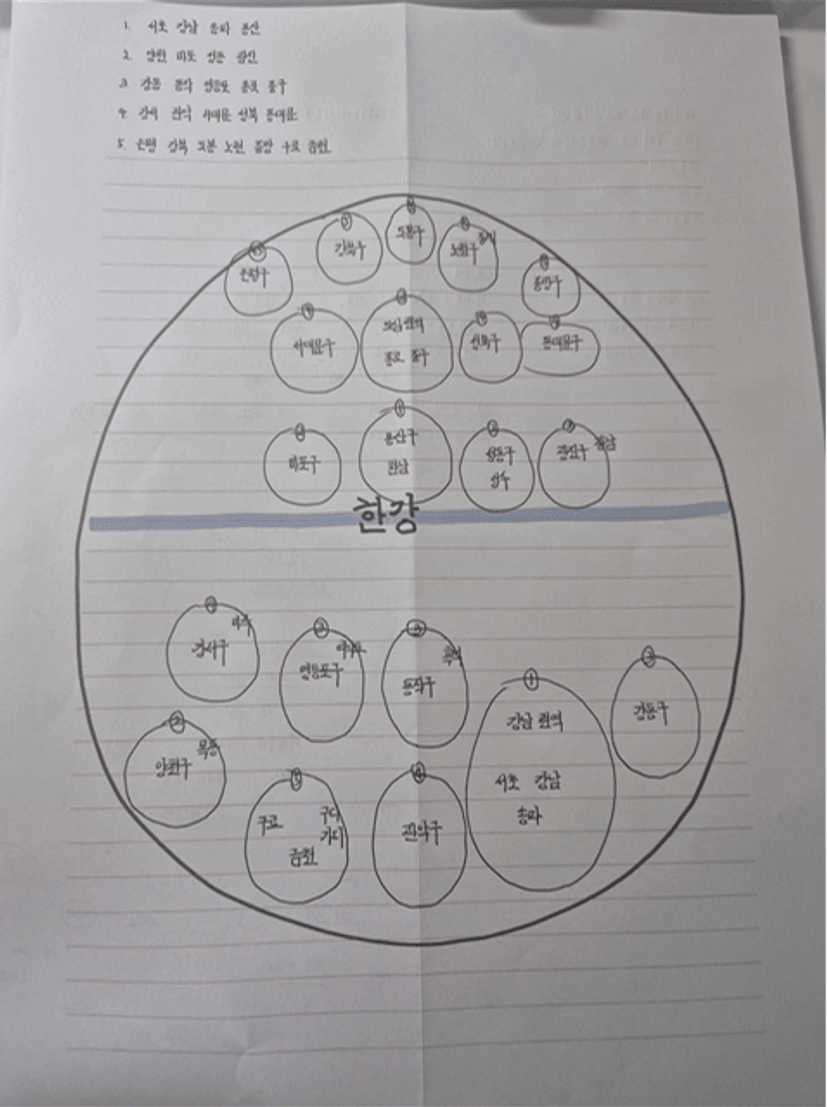 1. 서초 강남 송파 용산
2. 양천 마포 성동 광진
3. 강동 동작 영등포 종로 중구
4. 강서 관악 서대문 성북 동대문
5. 은평 강북 도봉 노원 중랑 구로 금천
⑤ 은평구
⑤ 강북구
⑤ 도봉구
⑤ 노원구
⑤ 중랑구
④ 서대문구
③ 도심권역
종로 중구
④ 성북구
④ 동대문구
② 마포구
① 용산구
한남
② 성동구
성수
② 광진구
한강
④ 강서구
마곡
③ 영등포구
여의도
③ 동작구
흑석
① 강남권역
서초 강남
송파
③ 강동구
② 양천구
목동
⑤ 구로
구디
가디
금천
④ 관악구